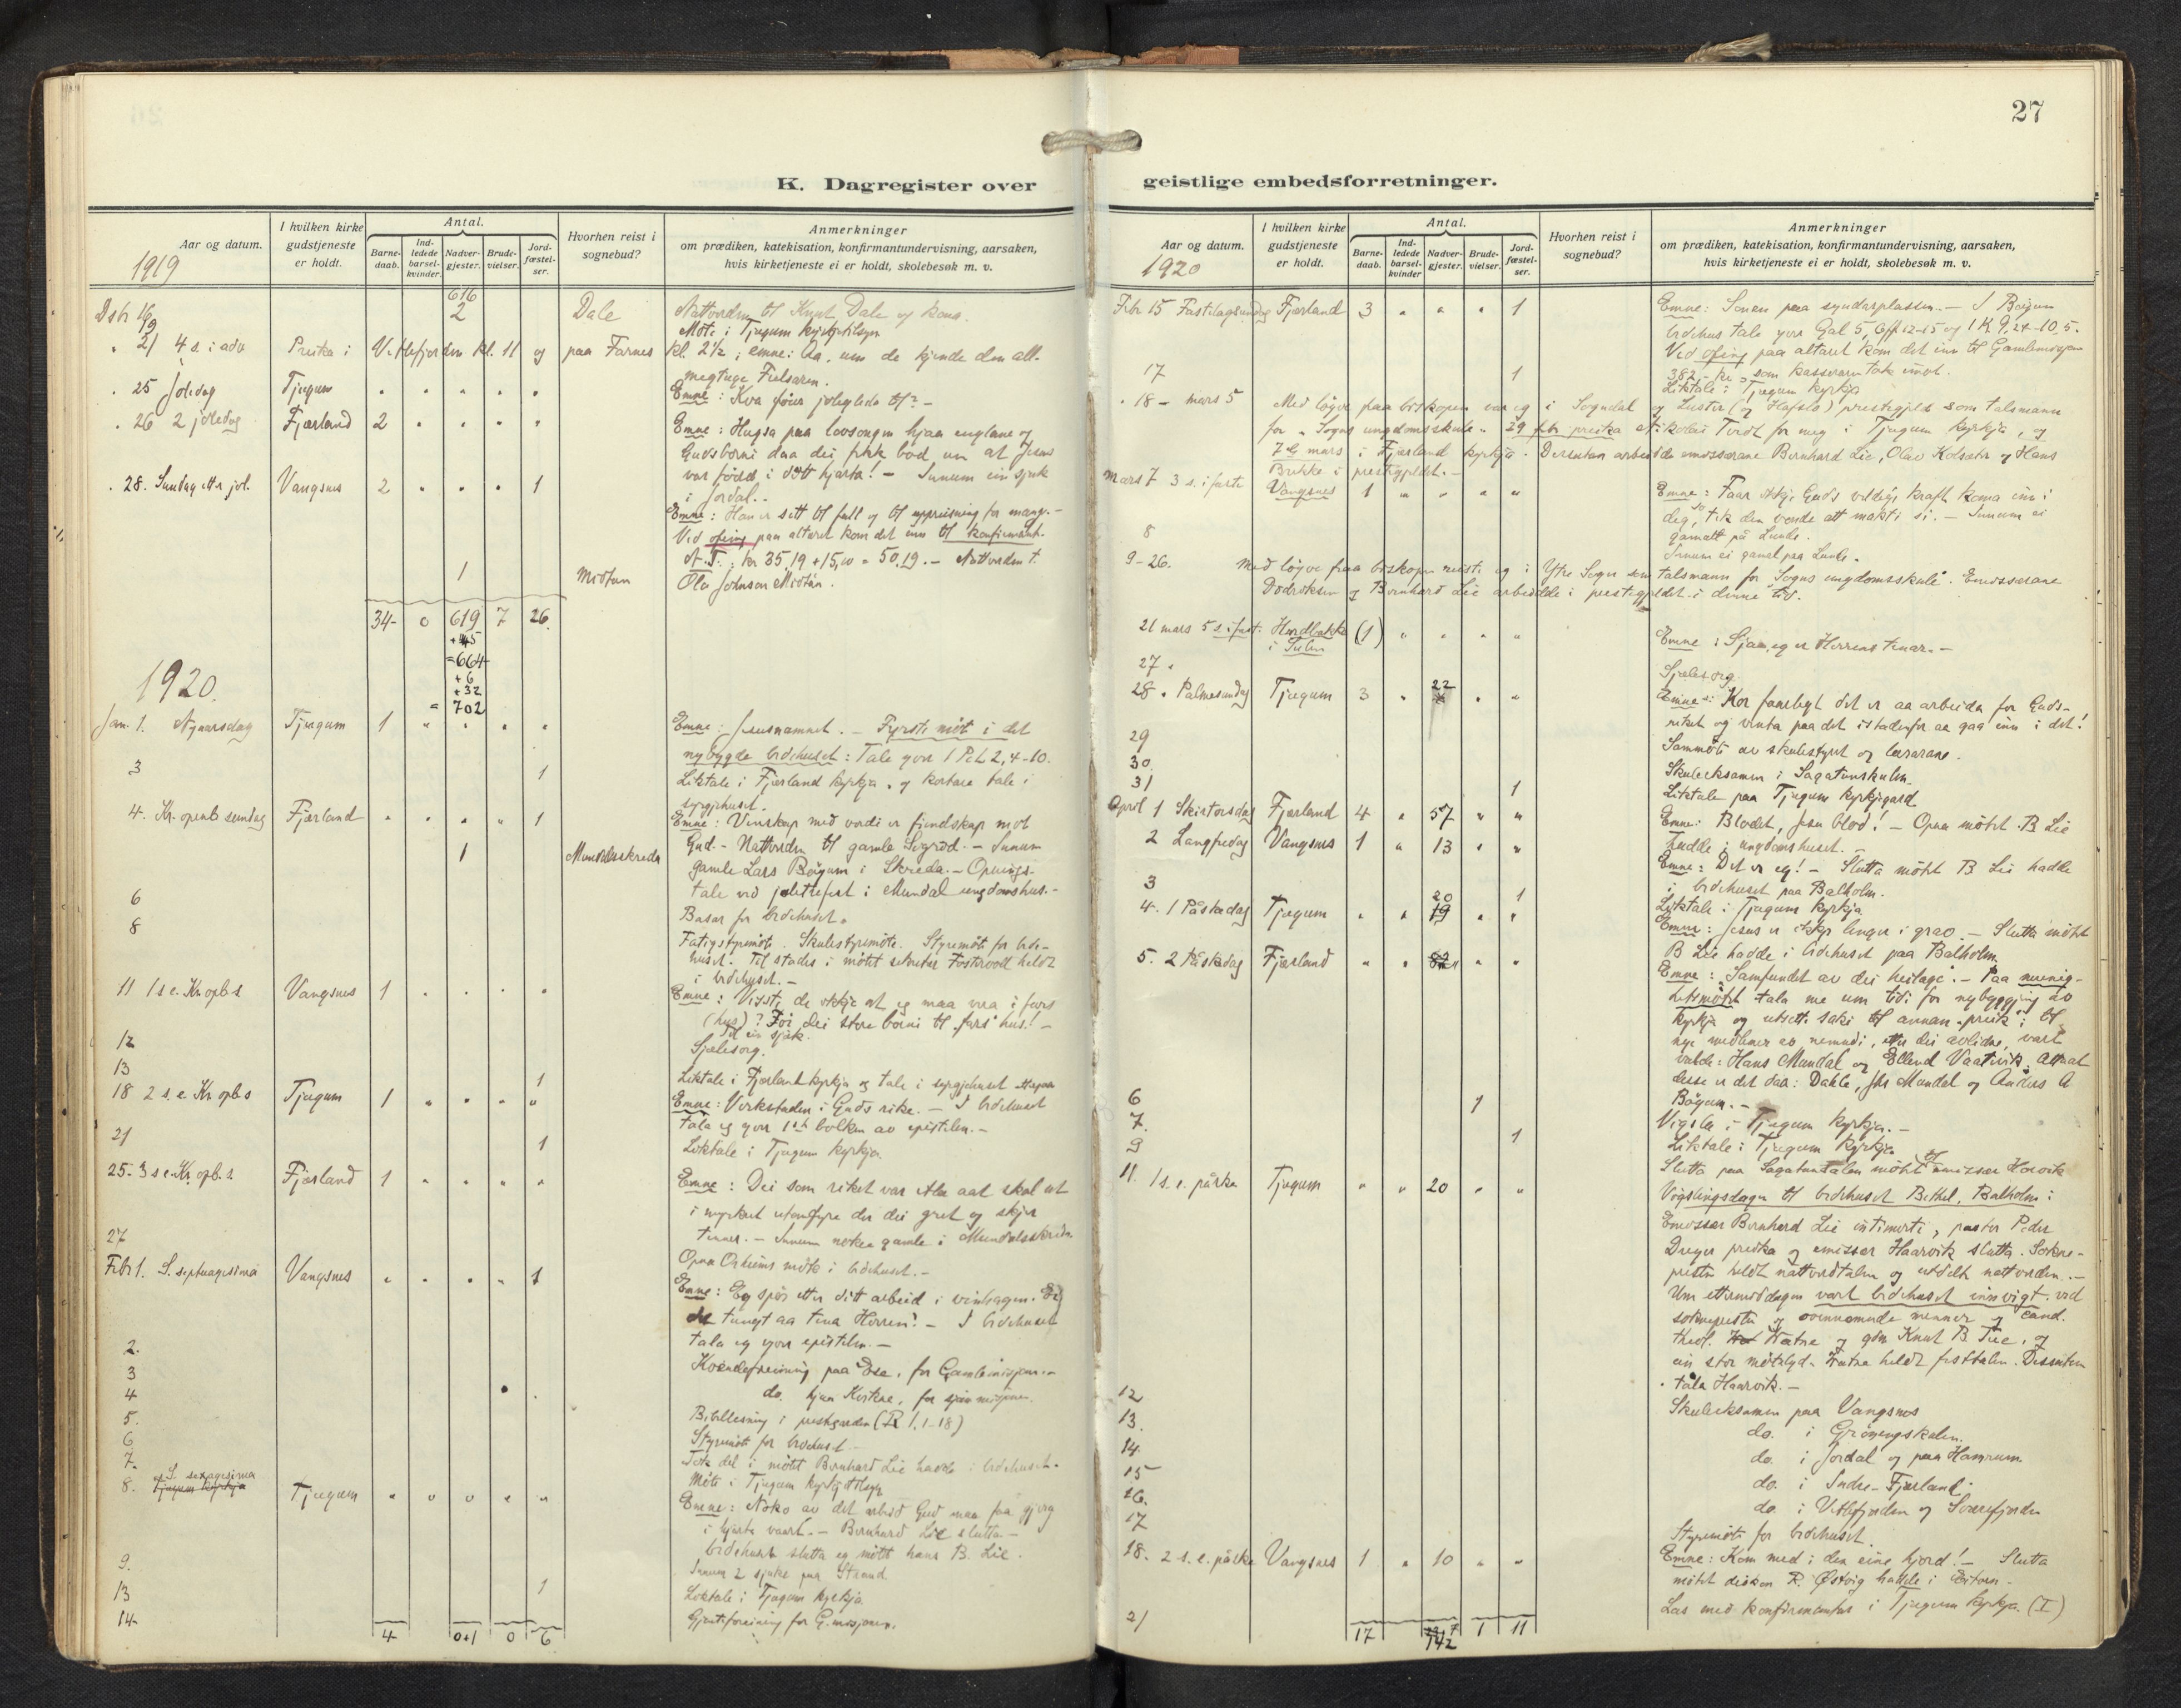 27
K. Dagregister over geistlige embedsforretninger.
Aar og datum.
1919
I hvilken kirke gudstjeneste er holdt.
Antal.
Barne-daab.
Ind-ledede barsel-kvinder.
Nadver-gjester.
Brude-vielser.
Jord-fæstel-ser.
Hvorhen reist i sognebud?
Anmerkninger
om prædiken, katekisation, konfirmantundervisning, aarsaken,
hvis kirketjeneste ei er holdt, skolebesøk m. v.
616
Dsbr 16 2 Dale Nattverden til Knut Dale og kona.
19 Møte i Tjugum kyrkjetilsyn
" 21 4 s. i adv Preika i Vetlefjorden kl. 11 og paa Farnes kl. 2½; emne: Aa, um de kjende den all-
megtuge Frelsaren.
" 25 Joledag Tjugum " " " " " Emne: Kva føier jolegleda til? –
" 26 2 joledag Fjærland 2 " " " " Emne: Hugsa paa lovsongen hjaa englane og
Guds borni daa dei fekk bod um at Jesus
var fødd i ditt hjarta! – Innum ein sjuk
i Jordal. –
" 28. Sundag ettr jol. Vangsnes 2 " " " 1 Emne: Han er sett til fall og til uppreisning for mange. –
Ved ofring paa alteret kom det inn til konfirmant.
N.T.: kr 35,19 + 15,00 = 50,19. – Nattverden t.
1 Midtun Ola Johnson Midtun.
34 0 619 7 26
+45
=664
+6
+32
= 702
1920.
Jan. 1. Nyaarsdag Tjugum 1 " " " " Emne: Jesusnamnet. – Fyrste møt i det
nybygde bedehuset: Tale yver 1 Pet 2, 4-10.
3 1 Liktale i Fjærland kyrkja, og kortare tale i
syrgjehuset.
4. Kr. openb sundag Fjærland " " " " 1 Emne: Venskap med verdi er fiendskap mot
1 Mundalsskreda Gud. – Nattverden til gamle Sigrid. – Innum
gamle Lars Bøyum i Skreda. – Opnings-
tale ved joletrefest i Mundal ungdomshus. –
6 Basar for bedehuset.
8 Fatigstyremøte. Skulestyremøte. Styremøte for bede-
huset. Til stades i møtet sekretær Fostervoll heldt
i bedehuset. –
11 1 s e. Kr. opb.s Vangsnes 1 " " " " Emne: Visste de ikkje at eg maa vera i fars
(hus)? Før dei store borni til fars hus! –
12 Til ein sjuk.
13 Sjælesorg.
1 Liktale i Fjærland kyrkja og tale i syrgjehuset
18 2 s. e. Kr. opb s Tjugum 1 " " " " Emne: Verkstaden i Guds rike. – I bedehuset
tala eg yver 1ste bolken av epistelen. –
21 1 Liktale i Tjugum kyrkja.
25. 3 s e. Kr. opb. s. Fjærland 1 " " " " Emne: Dei som riket var etla aat skal ut
i myrkret utanfyre der dei græt og skjer
tenner. – Innum nokre gamle i Mundalsskreda.
27 Opna Orheims møte i bedehuset. –
Febr 1. S. septuagesima Vangsnes " " " " 1 Emne: Eg spør etter ditt arbeid i vinhagen. Er
det tungt aa tena Herren? – I bedehuset
tala eg yver epistelen. –
2. Kvendeforeining paa Ese, for Gamlemisjonen. –
3 do. hjaa Kirkne, for sjømisjonen.
4 Bibellesning i prestgarden (R 1, 1-18)
5. Styremøte for bedehuset –
6 Tok del i møtet Bernhard Lie hadde i bedehuset.
7. Møte i Tjugum kyrkjetilsyn
8. S. sexagesima Tjugum " 0 0 " " Emne: Noko av det arbeid Gud maa faa gjera
i hjarta vaart. – Bernhard Lie slutta. –
bedehuset slutta eg møtet hans B. Lie.
9. Innum 2 sjuke paa Strand.
13 1 Liktale i Tjugum kyrkja
14 Gjenteforeining for G. misjonen.
4 0+1 0 6
Aar og datum.
1920
I hvilken kirke gudstjeneste er holdt.
Antal.
Barne-daab.
Ind-ledede barsel-kvinder
Nadver-gjester.
Brude-vielser.
Jord-fæstel-ser.
Hvorhen reist i sognebud?
Anmerkninger
om prædiken, katekisation, konfirmantundervisning, aarsaken,
hvis kirketjeneste ei er holdt, skolebesøk m. v.
Febr 15 Fastelagsundag Fjærland 3 " " " 1 Emne: Sonen paa syndarplassen. – I Bøyum
bedehus tale yver Gal 5, 6 ff 12-15 og 1 K 9, 24-10, 5.
Ved ofring paa altaret kom det inn til Gamlemisjonen
382,- kr, som kasseraren tok imot.
17 1 Liktale i Tjugum kyrkja
" 18 – mars 5 Med løyve fraa biskopen var eg i Sogndal og Luster (og Hafslo) prestegjeld som talsmann
for "Sogns ungdomsskule". 29 febr preika Nikolai Tvedt for meg i Tjugum kyrkja, og
7de mars i Fjærland kyrkja. Dersutan arbeidde emissærane Bernhard Lie, Olav Kolsæter og Hans
Brekke i prestegjeldet. –
mars 7 3 s. i faste Vangsnes 1 " " " " Emne: Faar ikkje Guds veldige kraft koma inn i
deg, so tek den vonde att makti si. – Innum ei
gamall på Lunde.
8 Innum ei gamal paa Lunde.
9-26. Med løyve fraa biskopen reiste eg i Ytre Sogn som talsmann for "Sogns ungdomsskule". Emissærane
og Bernhard Lie arbeidde i prestegjeldet i denne tid.
21 mars 5 s. i fast. i (1) " " " " Emne: Sjaa, eg er Herrens tenar. –
27 " Sjælesorg
28 " Palmesundag Tjugum 3 " 22 " " Emne: Kor faarlegt det er aa arbeida for Guds-
riket og venta paa det istadenfor aa gaa inn i det!
29 Sammøte av skulestyret og lærarane.
30. Skuleeksamen i Sagatunskulen.
31 1 Liktale paa Tjugum kyrkjegard
April 1 Skirtorsdag Fjærland 4 " 57 " " Emne: Blodet, Jesu blod! – Opna møtet B Lie
hadde i ungdomshuset. –
2 Langfredag Vangsnes 1 " 13 " " Emne: Det er eg! – Slutta møtet B Lie hadde
i bedehuset paa Balholm.
3 1 Liktale i Tjugum kyrkja
20
4. 1 Påskedag Tjugum " " 19 " " Emne: Jesus er ikkje lenger i grav – Slutta møtet
B Lie hadde i bedehuset paa Balholm
5. 2 Påskedag Fjærland " " " " Emne: "Samfundet av dei heilage". – Paa menig-
hetsmøtet tala me um tidi for nybyggjing av
kyrkja og utsette saki til annan preik i
nye medlemer av nemndi, etter dei avlidne, vart
valde: Hans Mundal og Ellend Vaatevik. Attaat
desse er det daa: Dahle, Joh Mundal og Anders A
Bøyum. –
6 1 Vigsla i Tjugum kyrkja. –
7. 1 Liktale i Tjugum kyrkja
9 Slutta paa Sagatunsalen møtet til emissær Horvik
11. 1 s. e. påske Tjugum " " 20 " " Vigslingsdagen til bedehuset Bethel, Balholm:
Emissær Bernhard Lie intimerte, pastor Peder
Dreyer preika og emissær Haarvik slutta. Sokne-
presten heldt nattverdtalen og utdelte nattverden. –
Um ettermiddagen vart bedehuset innvigt ved
soknepresten og ovennemnde menner og cand.
theol. Watne og gbr. Knut B. Tue, og
ein stor møtelyd. Watne heldt festtalen. Dessutan
tala Haarvik. –
12 Skuleeksamen paa Vangsnes
13. do. i Grøningskulen.
14. do. i Jordal og paa Hamrum
15 do. i Indre-Fjærland
16. do. i Vetlefjorden og Sværefjorden
17 Styremøte for bedehuset.
18. 2 s. e. påske Vangsnes 1 " 10 " " Emne: Kom med i den eine hjord! – Slutta
møtet diakon R. Østvig hadde i
21 Las med konfirmantar i Tjugum kyrkja. (I)
17 142 1 11